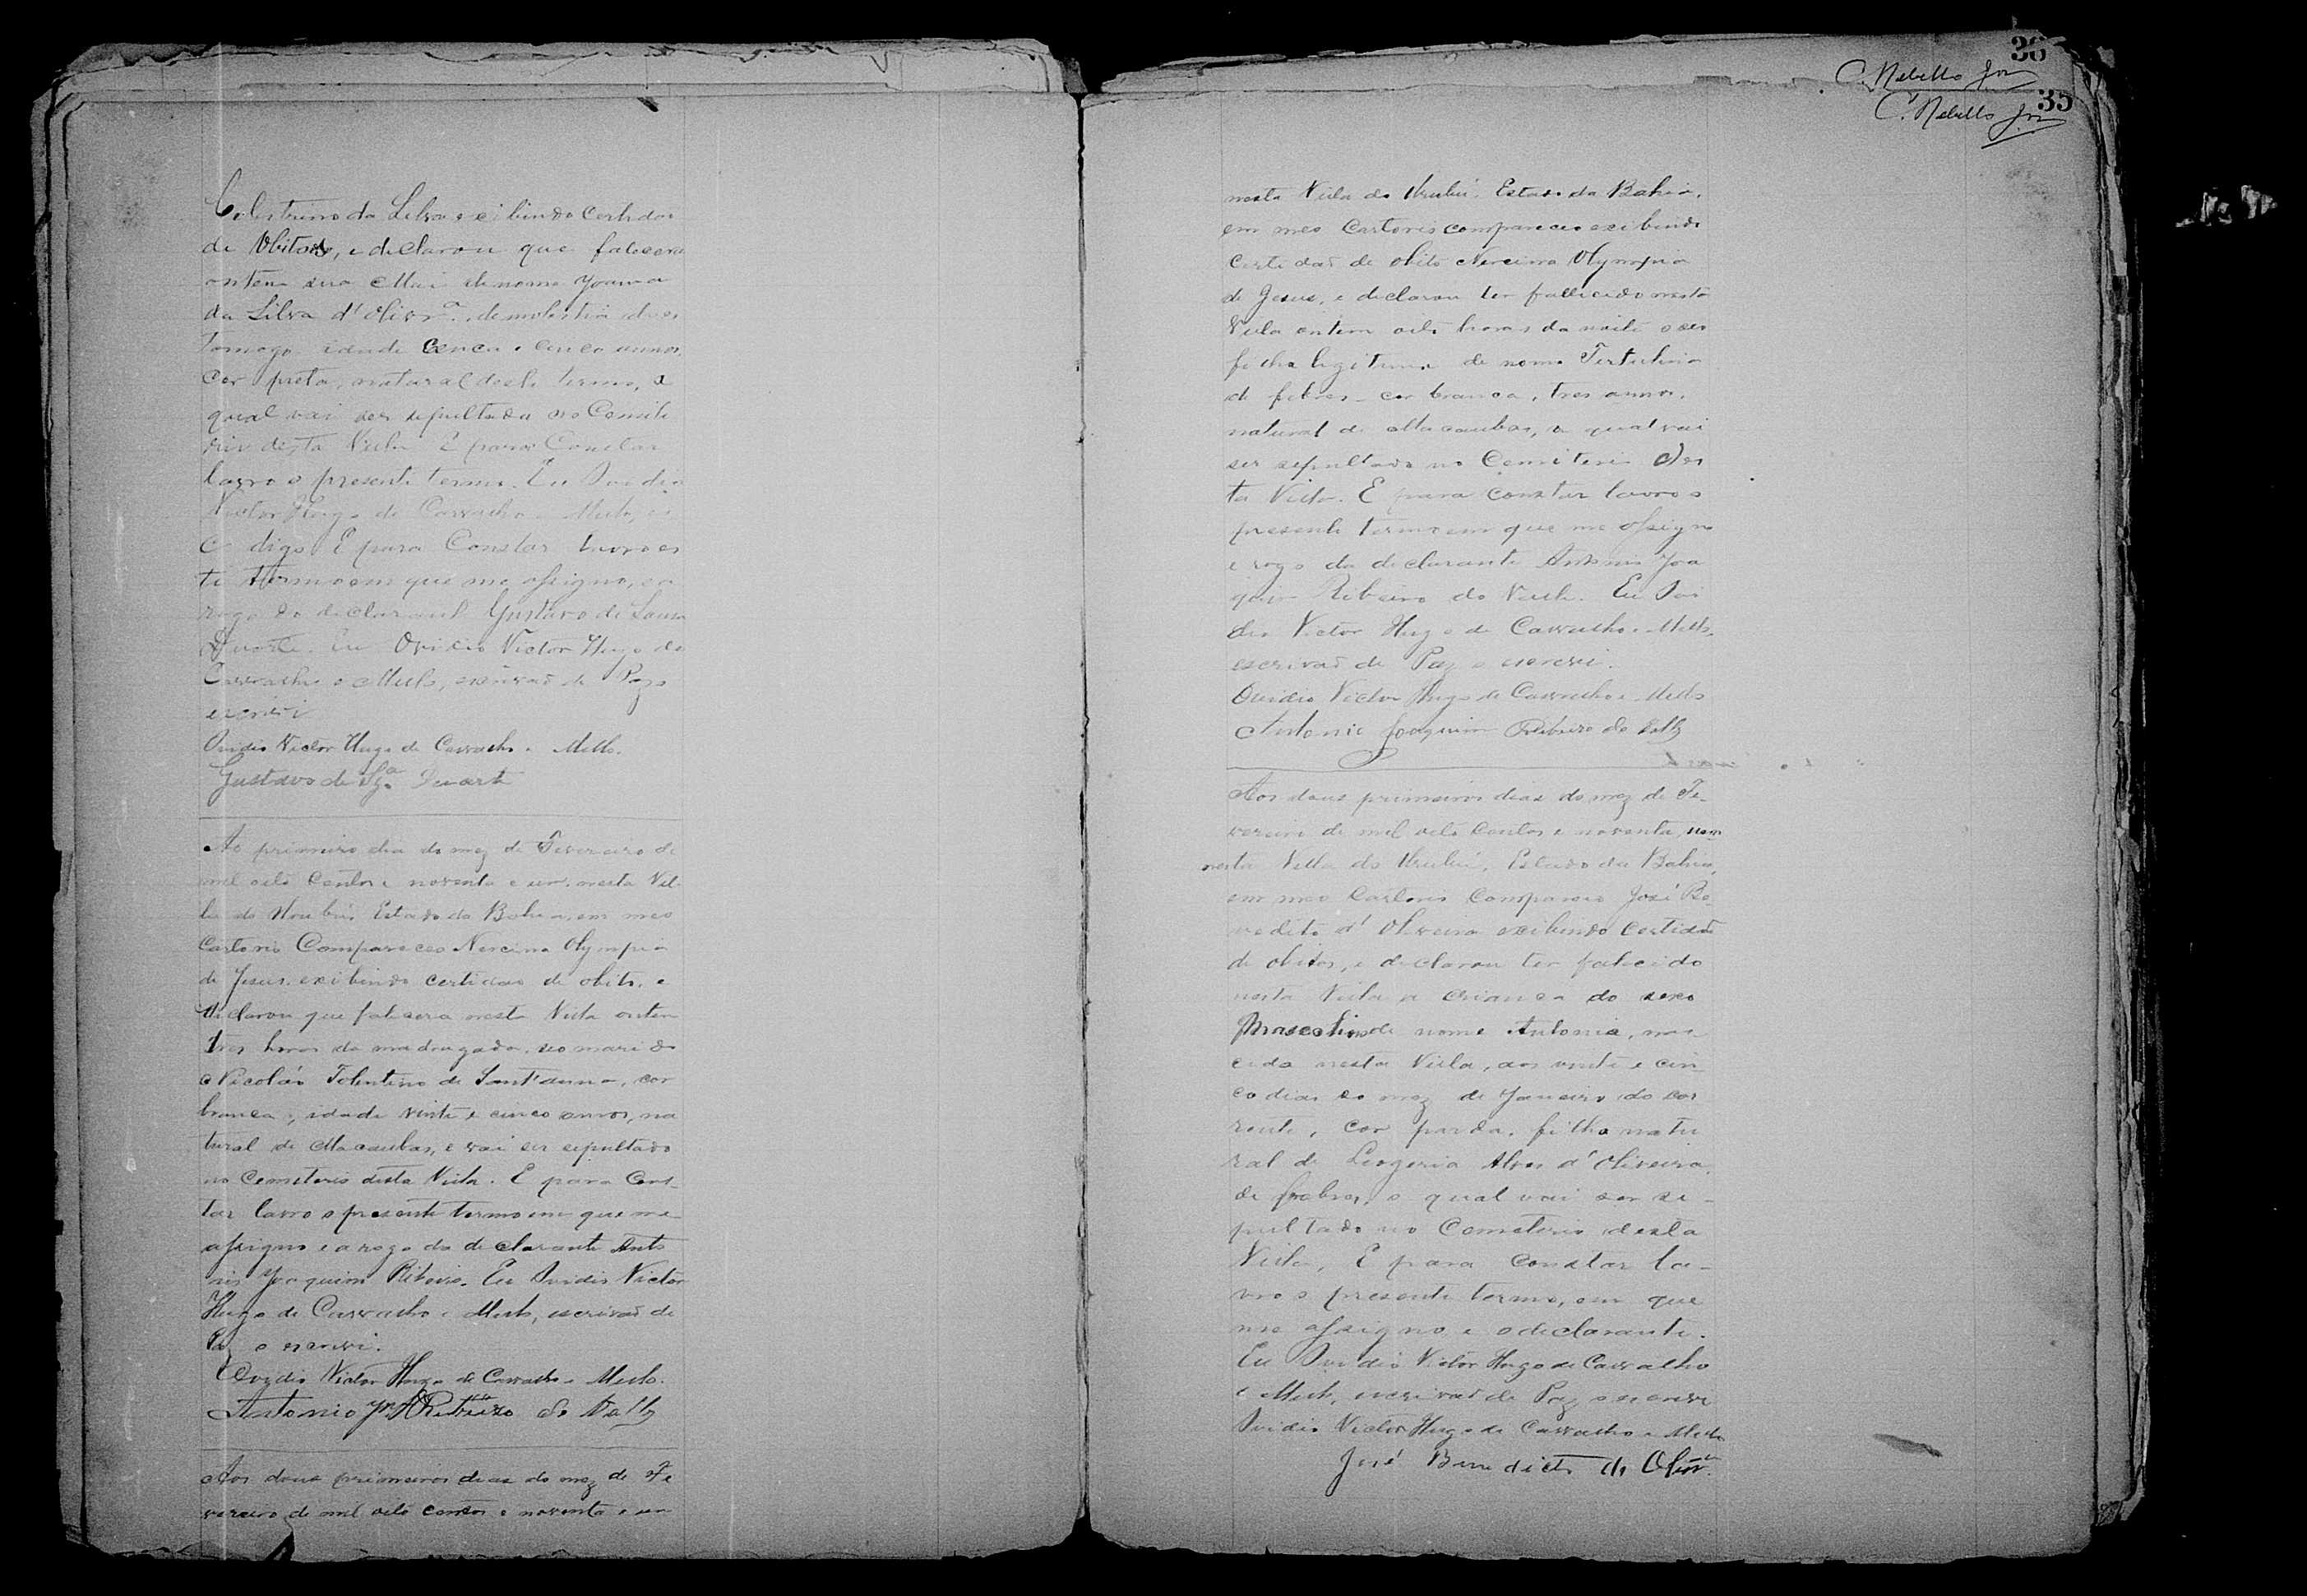 Celestrino da Silva exibindo certidão
de Obitos, e declarou que falecera
ontem sua Mai de nome Joanna
da Silva d'Olivrª. de molestia do es
tomago idade cenca e cinco annos,
cor preta, natural deste termo, a
qual vai ser sepultada no Cemite
rio desta Villa E para Constar
lavro o presente termo. Eu Ovidio
Victor Hugo de Carvalho e Mello, es
c digo E para Constar lavro es
te termo em que me assigno, e a
rogo do declarant Gustavo de Sousa
Duarte. Eu Ovidio Victor Hugo de
Carvalho e Mello, escrivaõ de Paz o
escrevi
Ovidio Victor Hugo de Carvalho e Mello.
Gustavo de Szª Duarte
Ao primeiro dia do mez de Fevereiro de
mil oito centos e noventa e um, nesta Vil
la do Urubú Estado da Bahia, em meo
Cartorio Compareceo Nercina Olympia
de Jesus, exibindo certidaõ de obito, e
declarou que falecera nesta Villa ontem
tres horas da madrugada, seo marido
Nicoláo Tolentino de Sant'anna, cor
branca, idade vinte e cinco annos, na
tural de Macaubas, e vai ser sepultado
no Cemeterio desta Villa. E para Cons-
tar lavro o presente termo em que me
assigno e a rogo da declarante Anto
nio Joaquim Ribeiro. Eu Ovidio Victor
Hugo de Carvalho e Mello, escrivaõ de
Paz o escrevi.
Ovydio Victor Hugo de Carvalho e Mello.
Antonio Jm. Ribeiro do Valle
Aos dous primeiros dias do mez de Fe
vereiro de mil oito centos e noventa e um
36
C. Rebello Jor
35
C. Rebello Jor
nesta Villa do Urubú Estado da Bahia,
em meo Cartorio compareceo exibindo
certidaõ de obito Nercina Olympia
de Jesus, e declarou ter fallecido nesta
Villa ontem oito horas da noite o seo
filha legitima de nome Tertulina
de febres - cor branca, tres annos,
natural de Macaubas, a qual vai
ser sepultada no Cemiterio des
ta Villa. E para constar lavro o
presente termo em que me assigno
e rogo da declarante Antonio Joa
quim Ribeiro do Valle. Eu Ovi
dio Victor Hugo de Carvalho e Mello,
escrivaõ de Paz o escrevi.
Ovidio Victor Hugo de Carvalho e Mello
Antonio Joaquim Ribeiro do Valle
Aos dous primeiros dias do mez de Fe-
vereiro de mil oito centos e noventa, um
nesta Villa do Urubú, Estado da Bahia,
em meo Cartorio Compareceo José Be
nedito d'Oliveira exibindo certidaõ
de obitos, e declarou ter falecido
nesta Villa a crianca do sexo
Mascolino de nome Antonio, nas
cido nesta Villa, aos vinte e cin
co dias do mez de Janeiro do cor
rente, cor parda, filho natu
ral de Leogeria Alves d'Oliveira,
de febres, o qual vai ser se-
pultado no Cemeterio desta
Villa, E para constar la-
vro o presente termo, em que
me assigno e o declarante.
Eu Ovidio Victor Hugo de Carvalho
e Mello, escrivaõ de Paz o escrevi
Ovidio Victor Hugo de Carvalho e Mello
José Benedicto de Olivrª.